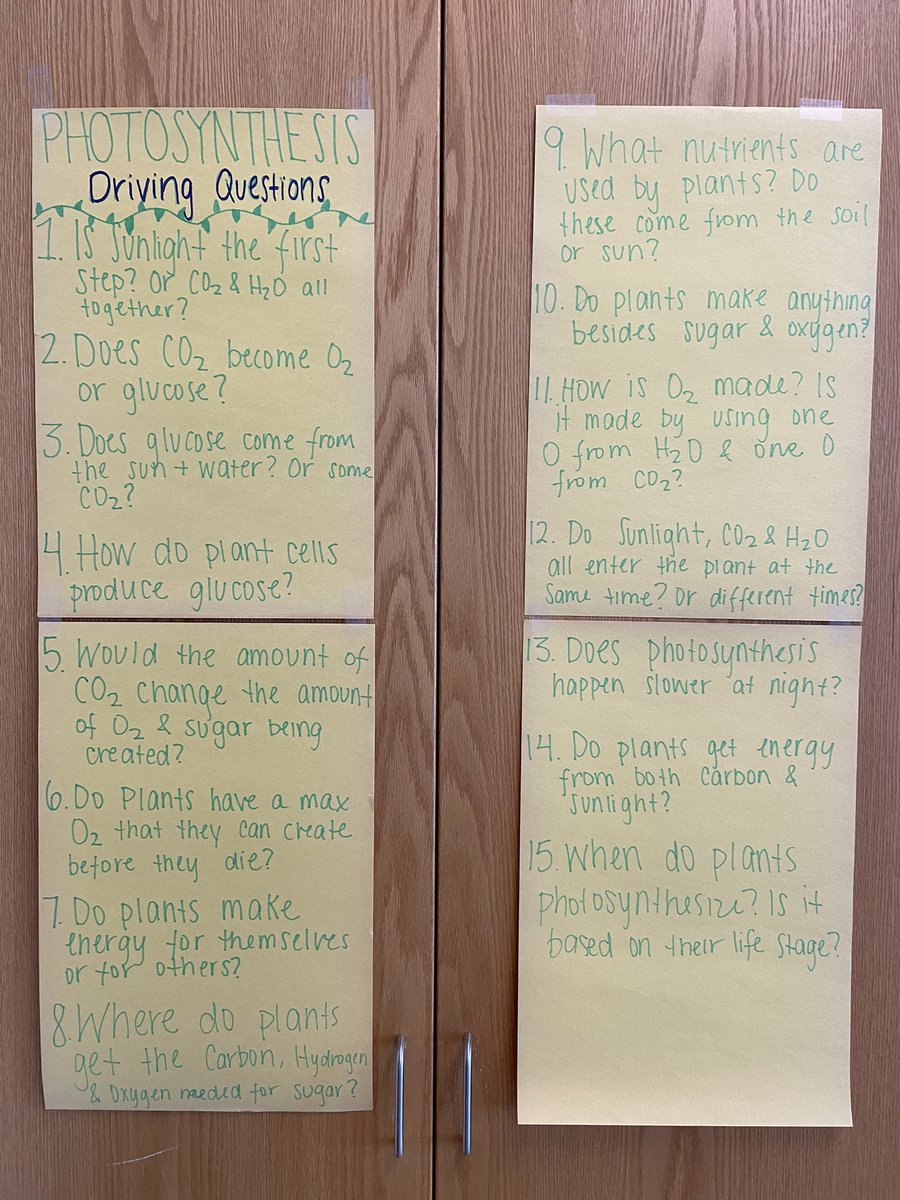 PHOTOSYNTHESIS
Driving Questions
1. Is Sunlight the first
step? Or CO₂ & H₂O all
together?
2. Does CO₂ become O₂
or glucose?
3. Does glucose come from
the sun + water? Or some
CO₂?
4. How do plant cells
produce glucose?
5. Would the amount of
CO₂ change the amount
of O₂ & sugar being
created?
6. Do Plants have a max
O₂ that they can create
before they die?
7. Do plants make
energy for themselves
or for others?
8. Where do plants
get the Carbon, Hydrogen
& Oxygen needed for sugar?
9. What nutrients are
used by plants? Do
these come from the soil
or sun?
10. Do plants make anything
besides sugar & oxygen?
11. How is O₂ made? Is
it made by using one
O from H₂O & one O
from CO₂?
12. Do Sunlight, CO₂ & H₂O
all enter the plant at the
same time? Or different times?
13. Does photosynthesis
happen slower at night?
14. Do plants get energy
from both carbon &
sunlight?
15. When do plants
photosynthesize? Is it
based on their life stage?